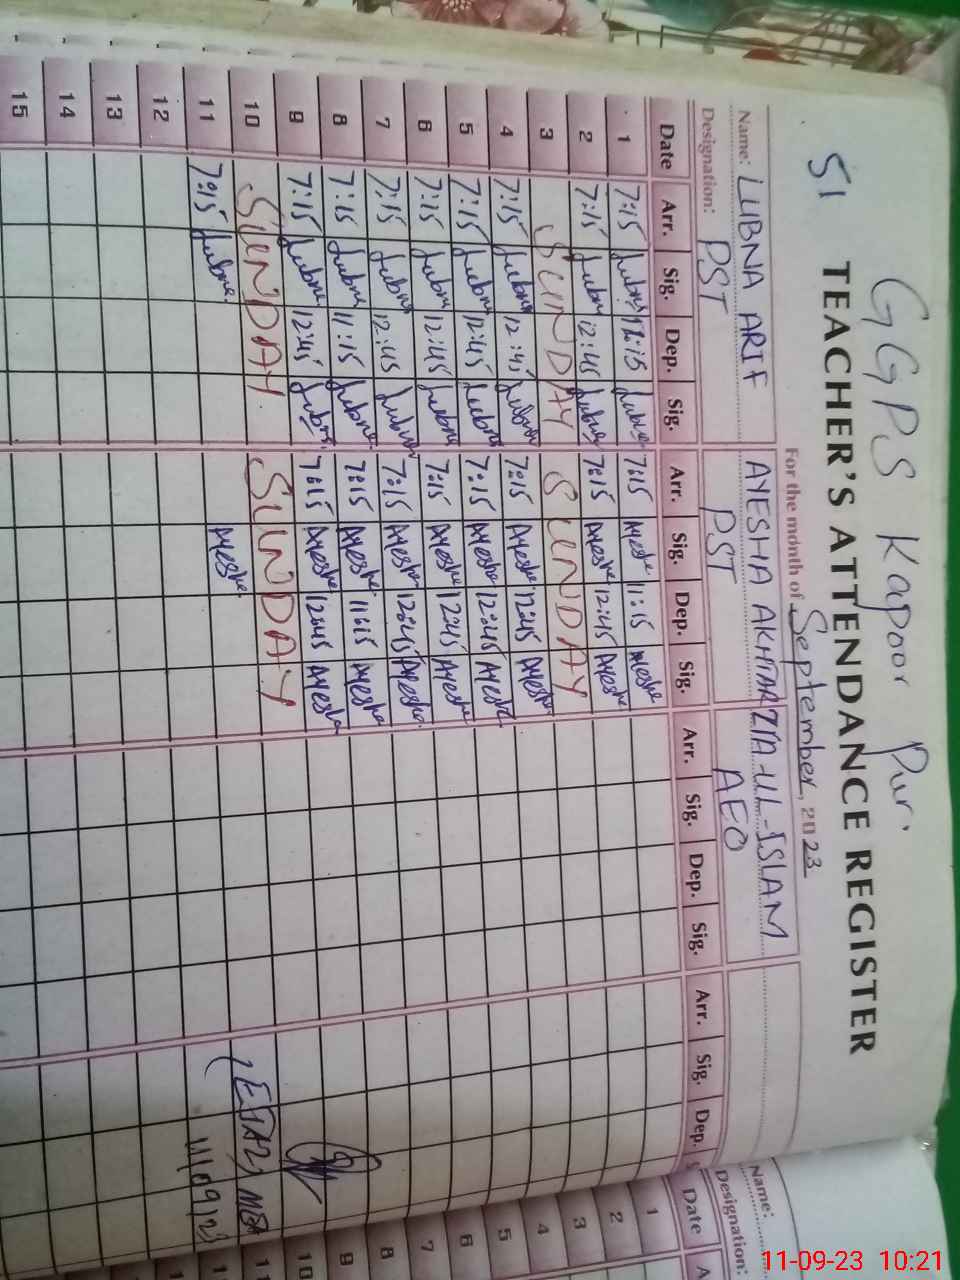 GGPS Kapoor Pur.
51
TEACHER'S ATTENDANCE REGISTER
For the month of September, 2023
Name: LUBNA ARIF AYESHA AKHTAR ZIA-UL-ISLAM
Designation: PST PST AEO
Date Arr. Sig. Dep. Sig. Arr. Sig. Dep. Sig. Arr. Sig. Dep. Sig. Arr. Sig. Dep. S
1 7:15 Lubna 11:15 Lubna 7:15 Ayesha 11:15 Ayesha
2 7:15 Lubna 12:45 Lubna 7:15 Ayesha 12:45 Ayesha
3 SUNDAY SUNDAY
4 7:15 Lubna 12:45 Lubna 7:15 Ayesha 12:45 Ayesha
5 7:15 Lubna 12:45 Lubna 7:15 Ayesha 12:45 Ayesha
6 7:15 Lubna 12:45 Lubna 7:15 Ayesha 12:45 Ayesha
7 7:15 Lubna 12:45 Lubna 7:15 Ayesha 12:45 Ayesha
8 7:15 Lubna 11:15 Lubna 7:15 Ayesha 11:15 Ayesha
9 7:15 Lubna 12:45 Lubna 7:15 Ayesha 12:45 Ayesha
10 SUNDAY SUNDAY (EJAZ, MEA
11 7:15 Lubna Ayesha 11/09/23
12
13
14
15
Name:
Designation:
Date A
1
2
3
4
5
6
7
8
9
10
11
1
1
11-09-23 10:21